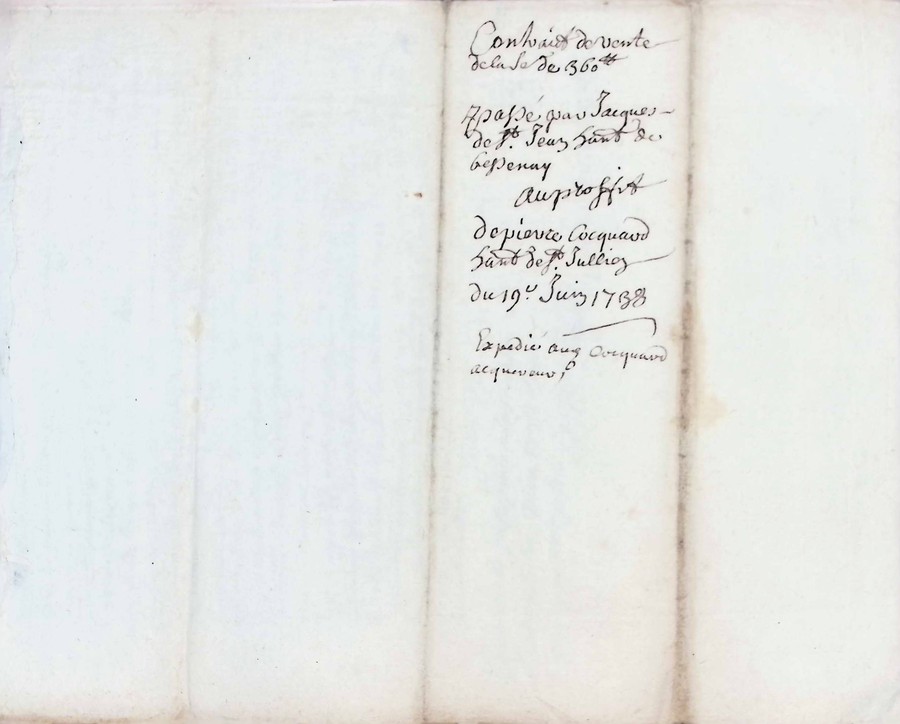 Contract de vente
de la Se de 360tt
passé par Jacques
de St. Jean hant de
Bessenay
au proffit
de pierre Cocquard
hant de St. Jullien
du 19e Juin 1738
Expedié aud Cocquard
acquereur